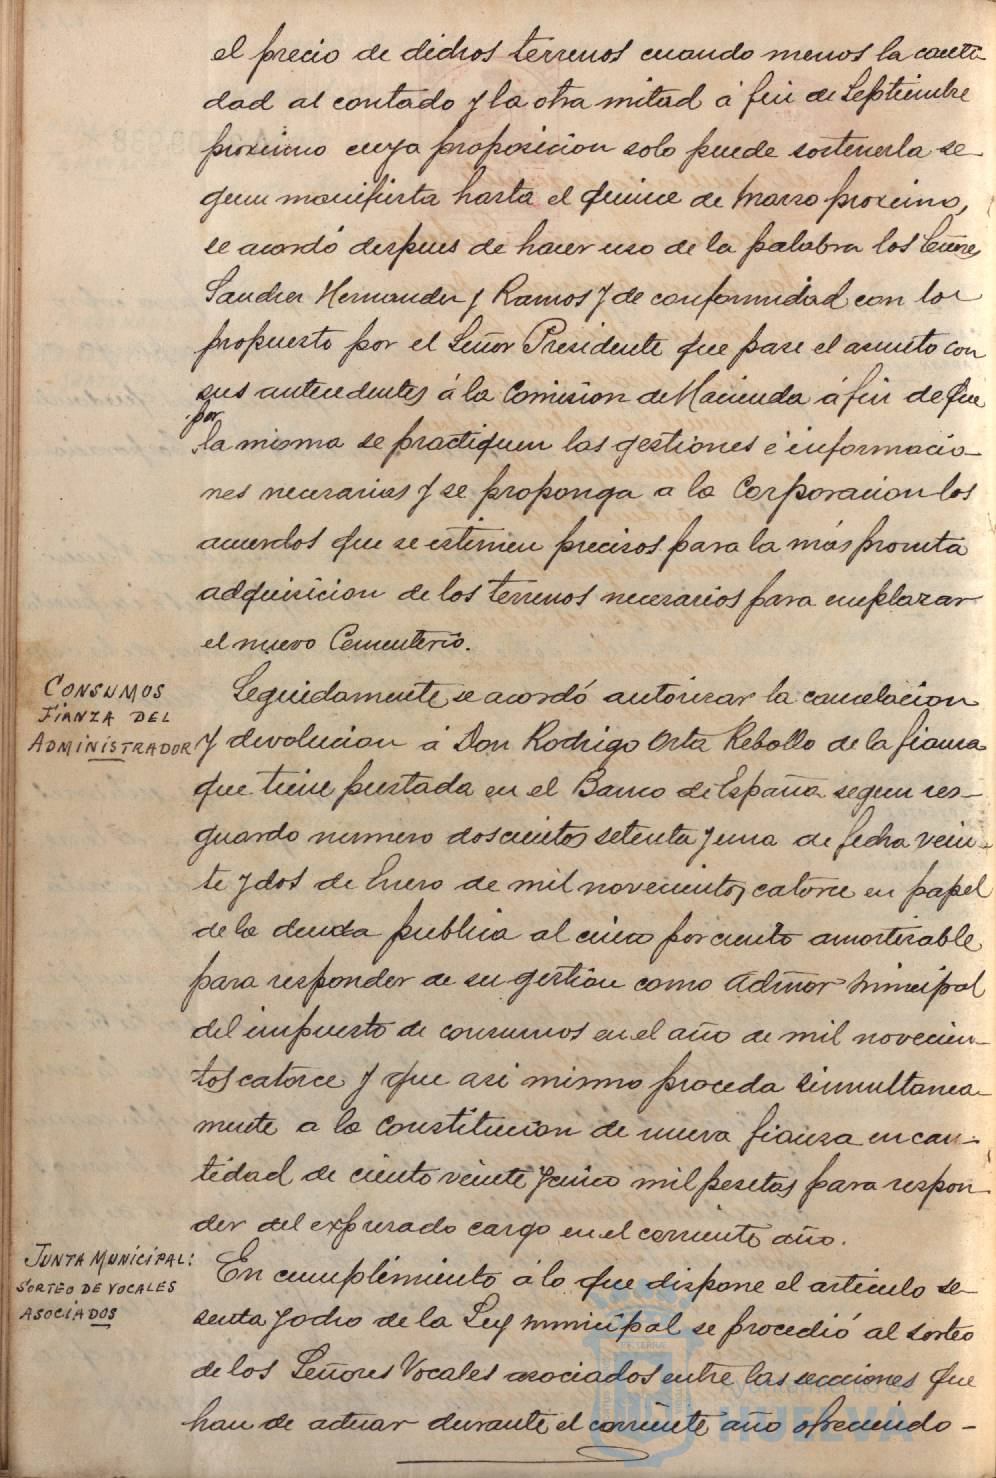 el precio de dichos terrenos cuando menos la canti-
dad al contado y la otra mitad á fin de Septiembre
proximo cuya proposicion solo puede sostenerla se-
gun manifiesta hasta el quince de Marzo proximo,
se acordó despues de hacer uso de la palabra los Señores
Sanchez Hernandez y Ramos y de conformidad con lo
propuesto por el Señor Presidente que pase el asunto con
sus antecedentes á la Comision de Hacienda á fin de que
por
la misma se practiquen las gestiones é informacio-
nes necesarias y se proponga a la Corporacion los
acuerdos que se estimen precisos para la más pronta
adquisicion de los terrenos necesarios para emplazar
el nuevo Cementerio.
CONSUMOS
FIANZA DEL
ADMINISTRADOR
Seguidamente se acordó autorizar la cancelacion
y devolucion á Don Rodrigo Orta Rebollo de la fianza
que tiene prestada en el Banco de España segun res-
guardo numero doscientos setenta y uno de fecha vein-
te y dos de Enero de mil novecientos catorce en papel
de la deuda publica al cinco por ciento amortizable
para responder de su gestion como Admor Municipal
del impuesto de consumos en el año de mil novecien-
tos catorce y que asi mismo proceda simultanea-
mente a la constitucion de nueva fianza en can-
tidad de ciento veinte y cinco mil pesetas para respon-
der del expresado cargo en el corriente año.
JUNTA MUNICIPAL:
SORTEO DE VOCALES
ASOCIADOS
En cumplimiento á lo que dispone el articulo se-
senta y ocho de la Ley Municipal se procedió al sorteo
de los Señores Vocales asociados entre las secciones que
han de actuar durante el corriente año ofreciendo -
Ayuntamiento de
HUELVA